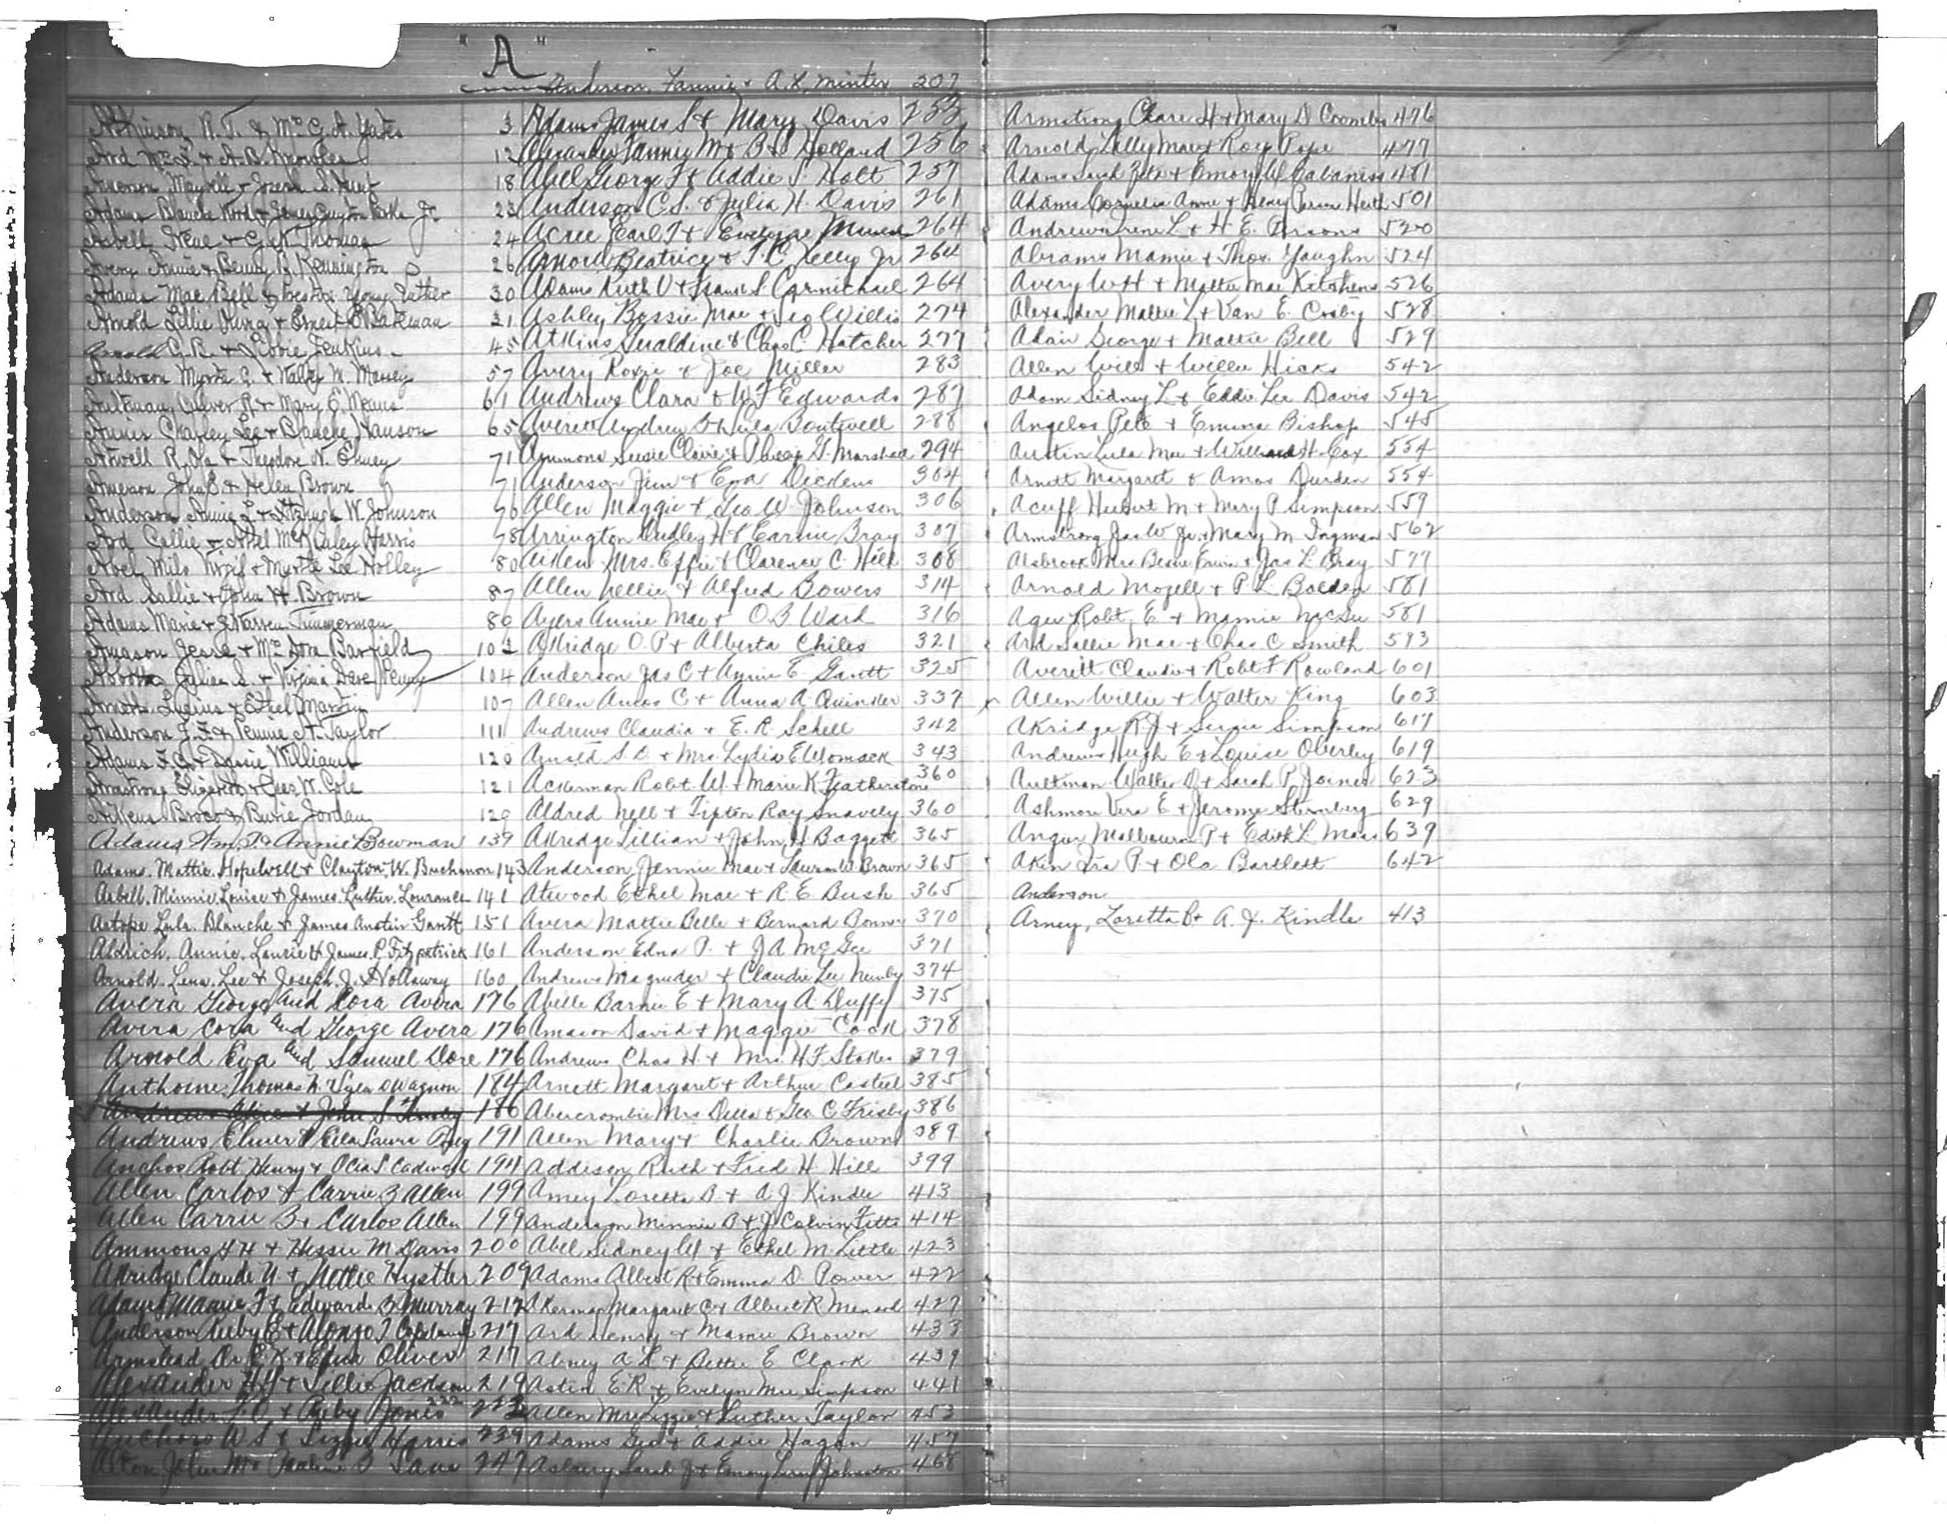 "A"
Anderson, Fannie + A.L. Minter 207
Atkinson R.T. & Mrs G.A. Yates 3
Ard + A.B. 12
Maybell + S. 18
Adams Blanche Wood + James Guyton Jr. 23
Asbell Irene + G.W. Thomas 24
Avery Annie & Benny R. Kennington 26
Adams Mae Bell & Young Luther 30
Arnold Lillie + Ernest Bateman 31
G.R. + Jenkins 45
Anderson Myrtle G. + Walter W. Massey 57
Aultman Oliver R + Mary E. 61
Charley Lee + Blanche Hanson 65
Atwell + Theodore W. 71
Amerson John E + Helen Brown 71
Anderson Annie L + W. Johnson 76
Ard Callie + Harris 78
Abel Wils Virgil + Myrtle Lee Holley 80
Ard Sallie + John H. Brown 87
Adams Marie + J Warren Timmerman 80
Amason Jesse + Mrs Dora Barfield 102
Abbott Julian S. + Virginia Dare Penny 104
Lucius + Ethel Martin 107
Anderson F.F. + Jennie A. Taylor 111
Adams F.C. + Daisie Williams 120
Armstrong Elizabeth + Chas W. Cole 121
Aikens + Jordan 129
Adams Wm. T. & Annie Bowman 139
Adams. Mattie. Hopewell + Clayton. W. Buchanon 143
Asbell. Minnie. Louise + James. Luther. Lowrance 141
Astope Lula. Blanche + James Austin Gantt 151
Aldrich. Annie. Laurie + James P. Fitzpatrick 161
Arnold. Lena. Lee + Joseph. J. Hollaway 160
Avera George and Cora Avera 176
Avera Cora and George Avera 176
Arnold Eva and Samuel Dore 176
Anthoine Thomas N. Wagnon 184
Andrews Alice + John S. 186
Andrews Elmer + Ella Laura 191
Anchos Robt Henry + Ocia S Cadwell 194
Allen Carlos + Carrie B Allen 199
Allen Carrie B + Carlos Allen 199
Ammons H H + Hessie M Davis 200
Akridge Claude N + Nettie Hystler 209
Adams Mamie F + Edward B Murray 212
Anderson Ruby E + Alonzo J Copeland 217
Armstead Dr. E.K + Oliver 217
Alexander H H + Lillie Jackson 219
Alexander + Ruby Jones 222
Anchors W S + Lizzie Harris 239
Alton John M + Pauline B Lane 247
Adams James S + Mary Davis 253
Alexander Fannie M + B S Holland 256
Abel George F + Addie S. Holt 257
Anderson C.S. + Julia H. Davis 261
Acree Earl T + Evelyne 264
Arnold Beatrice + T.C. Kelly Jr 264
Adams Ruth V + Frank S Carmichael 264
Ashley Bessie Mae + Leo Willis 274
Atkins Geraldine + Chas C Hatcher 277
Avery Roxie + Joe Miller 283
Andrews Clara + W F Edwards 287
Averett Andrew + Lula Boutwell 288
Ammons Susie Claire + Philip H. Marshall 294
Anderson Jim + Eva Dickens 304
Allen Maggie + Geo W. Johnson 306
Arrington Dudley H + Earnie Bray 307
Aiken Mrs. Effie + Clarence C. Hill 308
Allen Nellie + Alfred Bowers 314
Ayers Annie Mae + O B Ward 316
Akridge O P + Alberta Chiles 321
Anderson Jas C + Annie E Gantt 325
Allen Amos C + Anna A. 337
Andrews Claudia + E. R. Schell 342
Arnold S D + Mrs Lydia E Womack 343
Ackerman Robt W + Marie K Featherstone 360
Aldred Nell + Tipton Ray Snavely 360
Akridge Lillian + John H Baggett 365
Anderson Jennie Mae + Lawson W Brown 365
Atwood Ethel Mae + R. E Bush 365
Avera Mattie Belle + Bernard Bonner 370
Anderson Edna P. + J A McGee 371
Andrews Magruder + Claudie Lee Newby 374
Abille Barnie E + Mary A Duffy 375
Amason David + Maggie Cook 378
Andrews Chas H + Mrs H F Stokes 379
Arnett Margaret + Arthur Casteel 385
Abercrombie Mrs Della + Geo C Frisby 386
Allen Mary + Charlie Brown 389
Addison Ruth + Fred H Hill 399
Arney Loretta B + A J Kindle 413
Anderson Minnie B + J Calvin Fitts 414
Abel Sidney W + Ethel M Little 423
Adams Albert R + Emma D. Power 422
Akerman Margaret C + Albert R Menard 427
Ard Henry + Mamie Brown 433
Abney A L + Bettie E Clark 439
Astin E R + Evelyn Mae Simpson 441
Allen Mrs Lizzie + Luther Taylor 453
Adams Geo + Addie Hagan 457
Asbury Sarah J + Emory Johnston 468
Armstrong Clare H + Mary D Coombs 476
Arnold Lilly Mae + Roy Pope 477
Adams Sarah Zeta + Emory W Cabaniss 481
Adams Cornelia Anne + Henry Persons Heith 501
Andrews Irene L + H E. Persons 520
Abrams Mamie + Thos. Vaughn 524
Avery W H + Mattie Mae Kitchens 526
Alexander Mattie L + Van E. Cosby 528
Adair George + Mattie Bell 529
Allen Will + Willie Hicks 542
Adam Sidney L + Eddie Lee Davis 542
Angelos Pete + Emma Bishop 545
Austin Lula Mae + Willard H. Cox 554
Arnett Margaret + Amos Durden 554
Acuff Hubert M + Mary P Simpson 559
Armstrong Jas W Jr + Mary M Ingman 562
Alsbrook Mrs Bessie Erwin + Jas L Bray 577
Arnold Mozell + P L Balden 581
Ager Robt E + Mamie McGee 581
Ard Sallie Mae + Chas C Smith 593
Averitt Claudie + Robt F Rowland 601
Allen Willie + Walter King 603
Akridge R J + Susie Simpson 617
Andrews Hugh E + Louise Oberley 619
Aultman Walter D + Sarah P Joiner 623
Ashmon Vera E + Jerome Sternberg 629
Angus Malbourn P + Edith L Moss 639
Aken Ira P + Ola Bartlett 642
Anderson
Arney, Loretta B + A. J. Kindle 413